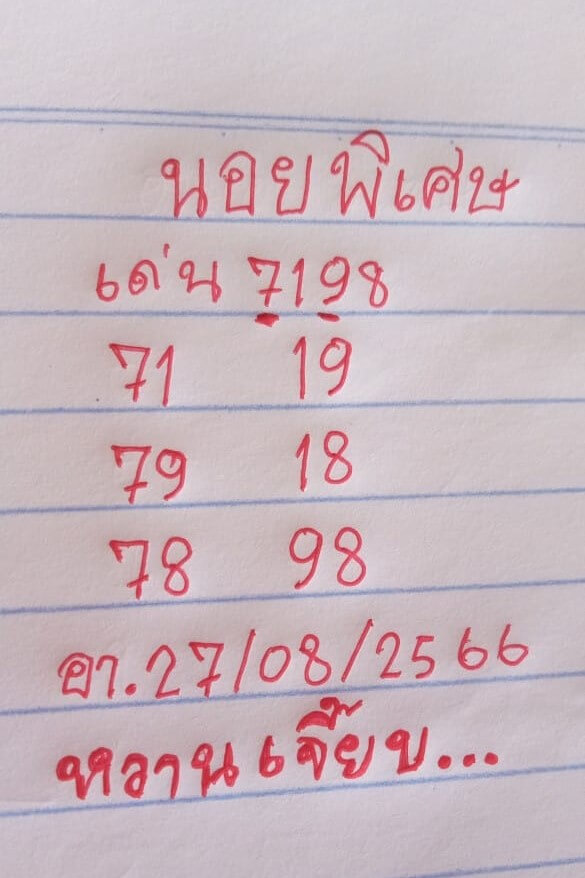 นอยพิเศษ
เด่น 7198
71 19
79 18
78 98
อา.27/08/2566
หวานเจี๊ยบ...